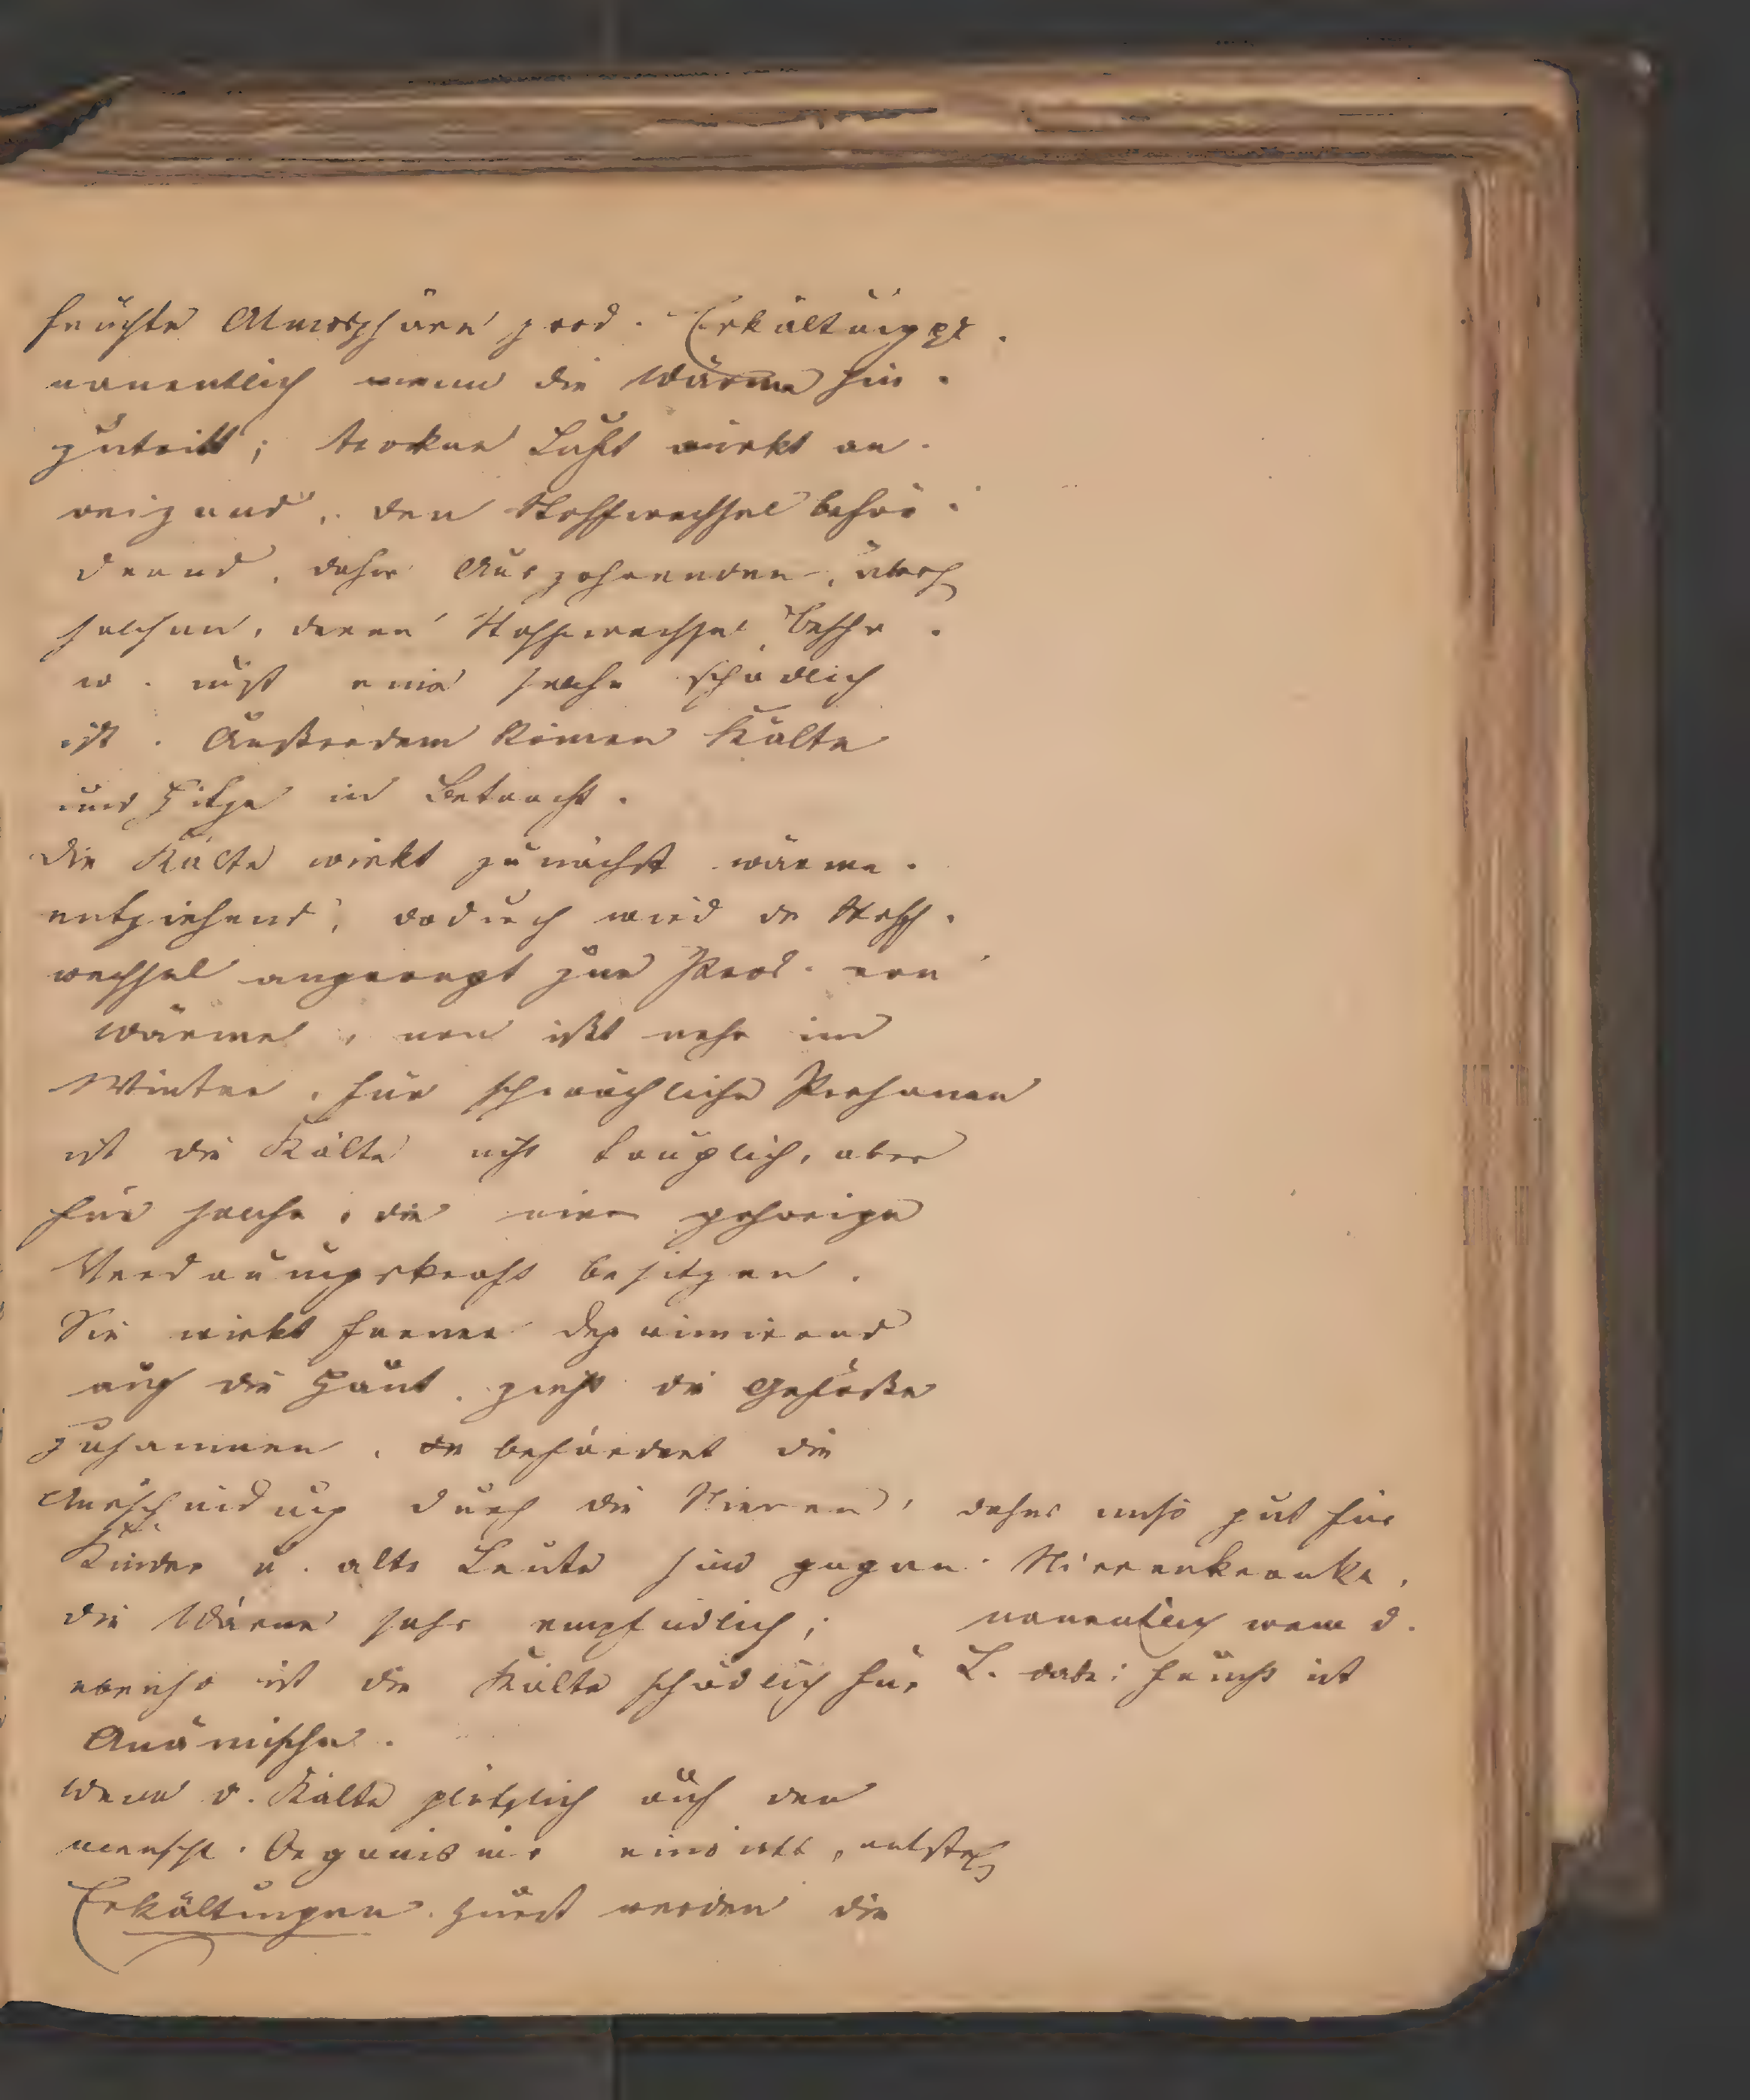 feuchte Atmosphäre prod. Erkältungs
namentlich wenn die Wärme hin-
zutritt; trokne Luft wirkt an-
reizend, den Stoffwechsel beför-
dernd, daher Auszehrenden, überh
solchen, deren Stoffwechsel besch
w. nicht eine solche schädlich
ist. Außerdem kömen Kälte
und Hitze in Betracht.
Die Kälte wirkt zunächst wärme-
entziehend, dadurch wird der Stoff-
wechsel angeregt zur Prod. von
Wärme, man ißt mehr im
Winter, für schwächliche Personen
ist die Kälte nicht tauglich, aber
für solche, die eine gehörige
Verdauungskraft besitzen.
Sie wirkt ferner deprimirend
auf die Haut, zieht die Gefäße
zusammen, befördert die
Ausscheidung durch die Nieren, daher nicht gut für
Kinder u. alte Leute sind gegen Nierenkranke,
die Wärme sehr empfindlich; namentlich wenn d.
ebenso ist die Kälte schädlich für L. dabei feucht ist
Anämische.
Wenn d. Kälte plötzlich auf den
menschl. Organismus einwirkt, entsteh
Erkältungen. Zuerst werden die